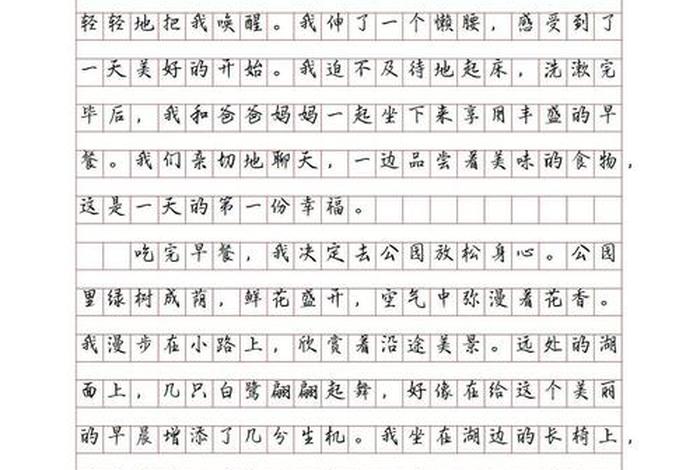 轻轻地把我唤醒。我伸了一个懒腰，感受到了
一天美好的开始。我迫不及待地起床，洗漱完
毕后，我和爸爸妈妈一起坐下来享用丰盛的早
餐。我们亲切地聊天，一边品尝着美味的食物，
这是一天的第一份幸福。
吃完早餐，我决定去公园放松身心。公园
里绿树成荫，鲜花盛开，空气中弥漫着花香。
我漫步在小路上，欣赏着沿途美景。远处的湖
面上，几只白鹭翩翩起舞，好像在给这个美丽
的早晨增添了几分生机。我坐在湖边的长椅上，